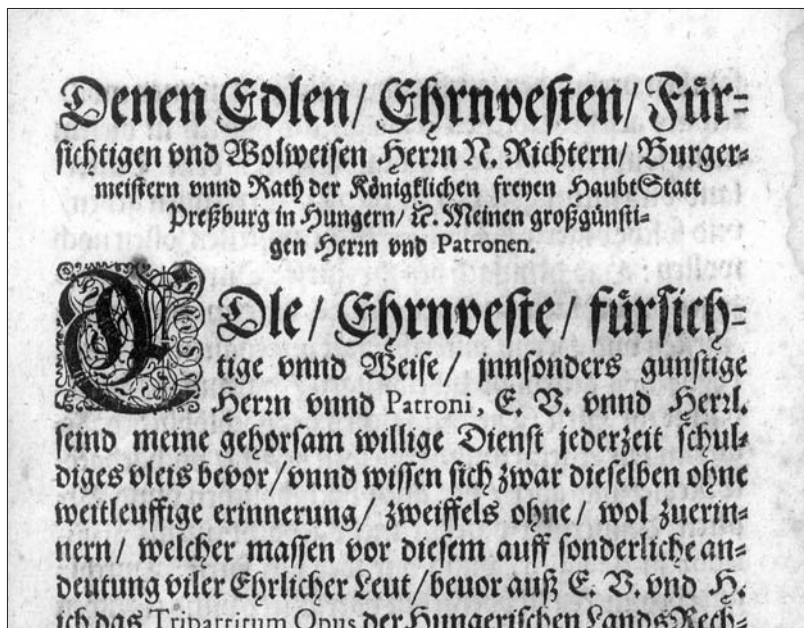 Denen Edlen/ Ehrnvesten/ Für-
sichtigen vnd Wolweisen Herrn N. Richtern/ Burger-
meistern vnnd Rath der Königklichen freyen HaubtStatt
Preßburg in Hungern/ ꝛc. Meinen großgünsti-
gen Herrn vnd Patronen.
EDle/ Ehrnveste/ fürsich-
tige vnnd Weise/ jnnsonders gunstige
Herrn vnnd Patroni, E. V. vnnd Herrl.
seind meine gehorsam willige Dienst jederzeit schul-
diges vleis bevor/ vnnd wissen sich zwar dieselben ohne
weitleuffige erinnerung/ zweiffels ohne/ wol zuerin-
nern/ welcher massen vor diesem auff sonderliche an-
deutung viler Ehrlicher Leut/ beuor auß E. V. vnd H.
ich das Tripartitum Opus der Hungerischen LandsRech-